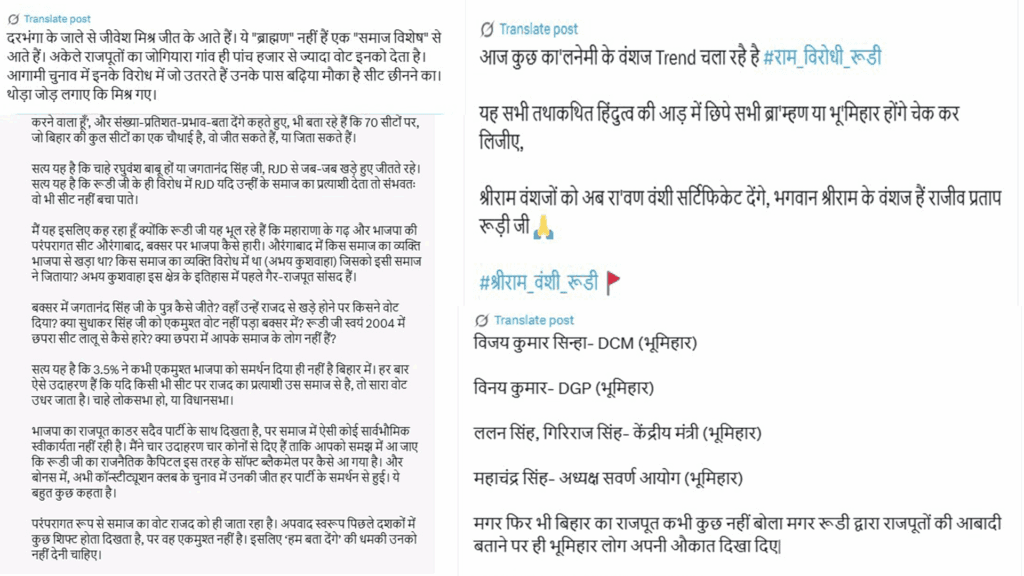 Translate post
दरभंगा के जाले से जीवेश मिश्र जीत के आते हैं। ये "ब्राह्मण" नहीं हैं एक "समाज विशेष" से
आते हैं। अकेले राजपूतों का जोगियारा गांव ही पांच हजार से ज्यादा वोट इनको देता है।
आगामी चुनाव में इनके विरोध में जो उतरते हैं उनके पास बढ़िया मौका है सीट छीनने का।
थोड़ा जोड़ लगाए कि मिश्र गए।
करने वाला हूँ', और संख्या-प्रतिशत-प्रभाव-बता देंगे कहते हुए, भी बता रहे हैं कि 70 सीटों पर,
जो बिहार की कुल सीटों का एक चौथाई है, वो जीत सकते हैं, या जिता सकते हैं।
सत्य यह है कि चाहे रघुवंश बाबू हों या जगतानंद सिंह जी, RJD से जब-जब खड़े हुए जीतते रहे।
सत्य यह है कि रूडी जी के ही विरोध में RJD यदि उन्हीं के समाज का प्रत्याशी देता तो संभवतः
वो भी सीट नहीं बचा पाते।
मैं यह इसलिए कह रहा हूँ क्योंकि रूडी जी यह भूल रहे हैं कि महाराणा के गढ़ और भाजपा की
परंपरागत सीट औरंगाबाद, बक्सर पर भाजपा कैसे हारी। औरंगाबाद में किस समाज का व्यक्ति
भाजपा से खड़ा था? किस समाज का व्यक्ति विरोध में था (अभय कुशवाहा) जिसको इसी समाज
ने जिताया? अभय कुशवाहा इस क्षेत्र के इतिहास में पहले गैर-राजपूत सांसद हैं।
बक्सर में जगतानंद सिंह जी के पुत्र कैसे जीते? वहाँ उन्हें राजद से खड़े होने पर किसने वोट
दिया? क्या सुधाकर सिंह जी को एकमुश्त वोट नहीं पड़ा बक्सर में? रूडी जी स्वयं 2004 में
छपरा सीट लालू से कैसे हारे? क्या छपरा में आपके समाज के लोग नहीं हैं?
सत्य यह है कि 3.5% ने कभी एकमुश्त भाजपा को समर्थन दिया ही नहीं है बिहार में। हर बार
ऐसे उदाहरण हैं कि यदि किसी भी सीट पर राजद का प्रत्याशी उस समाज से है, तो सारा वोट
उधर जाता है। चाहे लोकसभा हो, या विधानसभा।
भाजपा का राजपूत काडर सदैव पार्टी के साथ दिखता है, पर समाज में ऐसी कोई सार्वभौमिक
स्वीकार्यता नहीं रही है। मैंने चार उदाहरण चार कोनों से दिए हैं ताकि आपको समझ में आ जाए
कि रूडी जी का राजनैतिक कैपिटल इस तरह के सॉफ्ट ब्लैकमेल पर कैसे आ गया है। और
बोनस में, अभी कॉन्स्टीट्यूशन क्लब के चुनाव में उनकी जीत हर पार्टी के समर्थन से हुई। ये
बहुत कुछ कहता है।
परंपरागत रूप से समाज का वोट राजद को ही जाता रहा है। अपवाद स्वरूप पिछले दशकों में
कुछ शिफ्ट होता दिखता है, पर वह एकमुश्त नहीं है। इसलिए 'हम बता देंगे' की धमकी उनको
नहीं देनी चाहिए।
Translate post
आज कुछ का'लनेमी के वंशज Trend चला रहै है #राम_विरोधी_रूडी
यह सभी तथाकथित हिंदुत्व की आड़ में छिपे सभी ब्रा'म्हण या भू'मिहार होंगे चेक कर
लिजीए,
श्रीराम वंशजों को अब रा'वण वंशी सर्टिफिकेट देंगे, भगवान श्रीराम के वंशज हैं राजीव प्रताप
रूड़ी जी 🙏
#श्रीराम_वंशी_रूडी 🚩
Translate post
विजय कुमार सिन्हा- DCM (भूमिहार)
विनय कुमार- DGP (भूमिहार)
ललन सिंह, गिरिराज सिंह- केंद्रीय मंत्री (भूमिहार)
महाचंद्र सिंह- अध्यक्ष सवर्ण आयोग (भूमिहार)
मगर फिर भी बिहार का राजपूत कभी कुछ नहीं बोला मगर रूडी द्वारा राजपूतों की आबादी
बताने पर ही भूमिहार लोग अपनी औकात दिखा दिए|